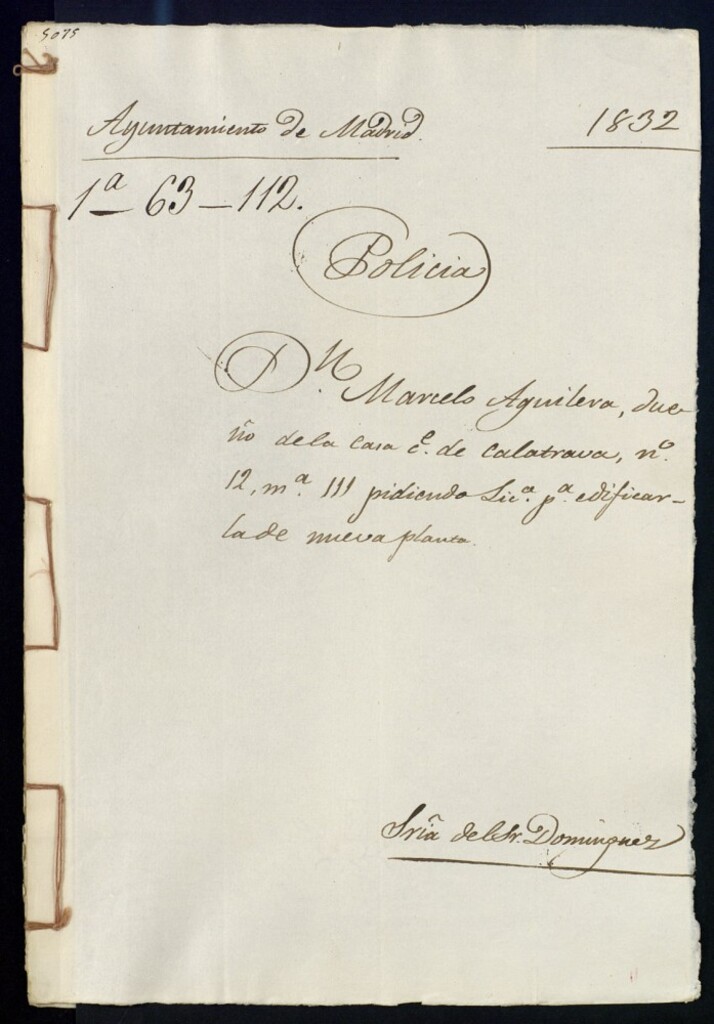 5075
Ayuntamiento de Madrid.
1832
1ª 63-112.
Policia
Dn. Marcelo Aguilera, due-
ño dela casa c.e de Calatrava, nº.
12, mª. 111 pidiendo Lic.ª pª. edificar-
la de nueva planta.
Sria del Sr. Dominguez